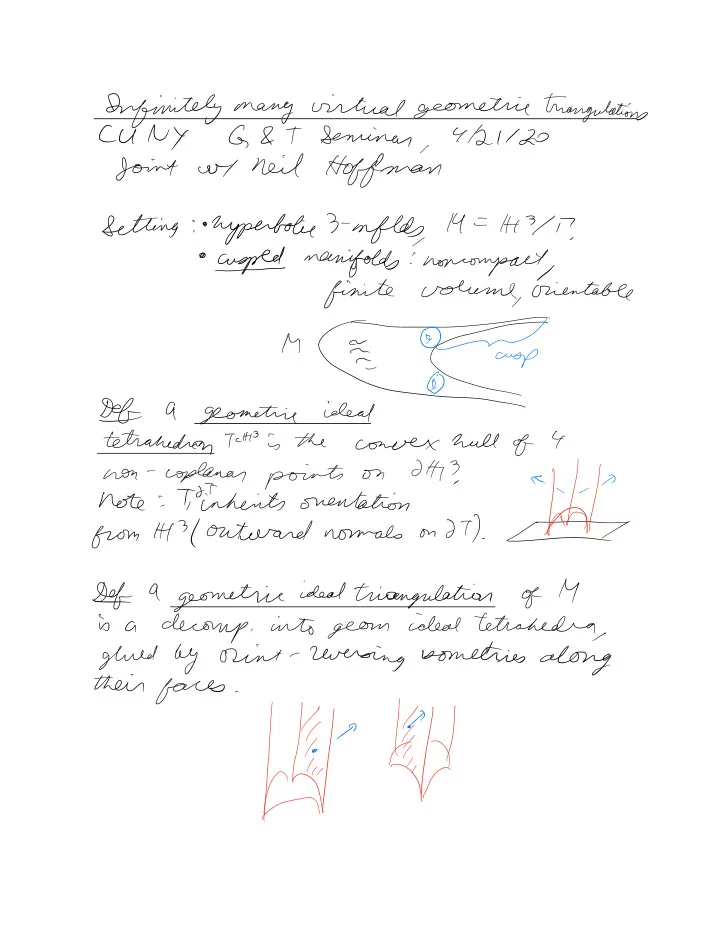 Infinitely many virtual geometric triangulations
CUNY G & T Seminar, 4/21/20
Joint w/ Neil Hoffman
Setting: • hyperbolic 3-mflds, M = ℍ³/Γ.
• cusped manifolds: noncompact,
finite volume, orientable
M
cusp
Def a geometric ideal
tetrahedron T⊂ℍ³ is the convex hull of 4
non-coplanar points on ∂ℍ³.
Note: T, ∂T inherits orientation
from ℍ³ (outward normals on ∂T).
Def a geometric ideal triangulation of M
is a decomp. into geom ideal tetrahedra,
glued by orient-reversing isometries along
their faces.